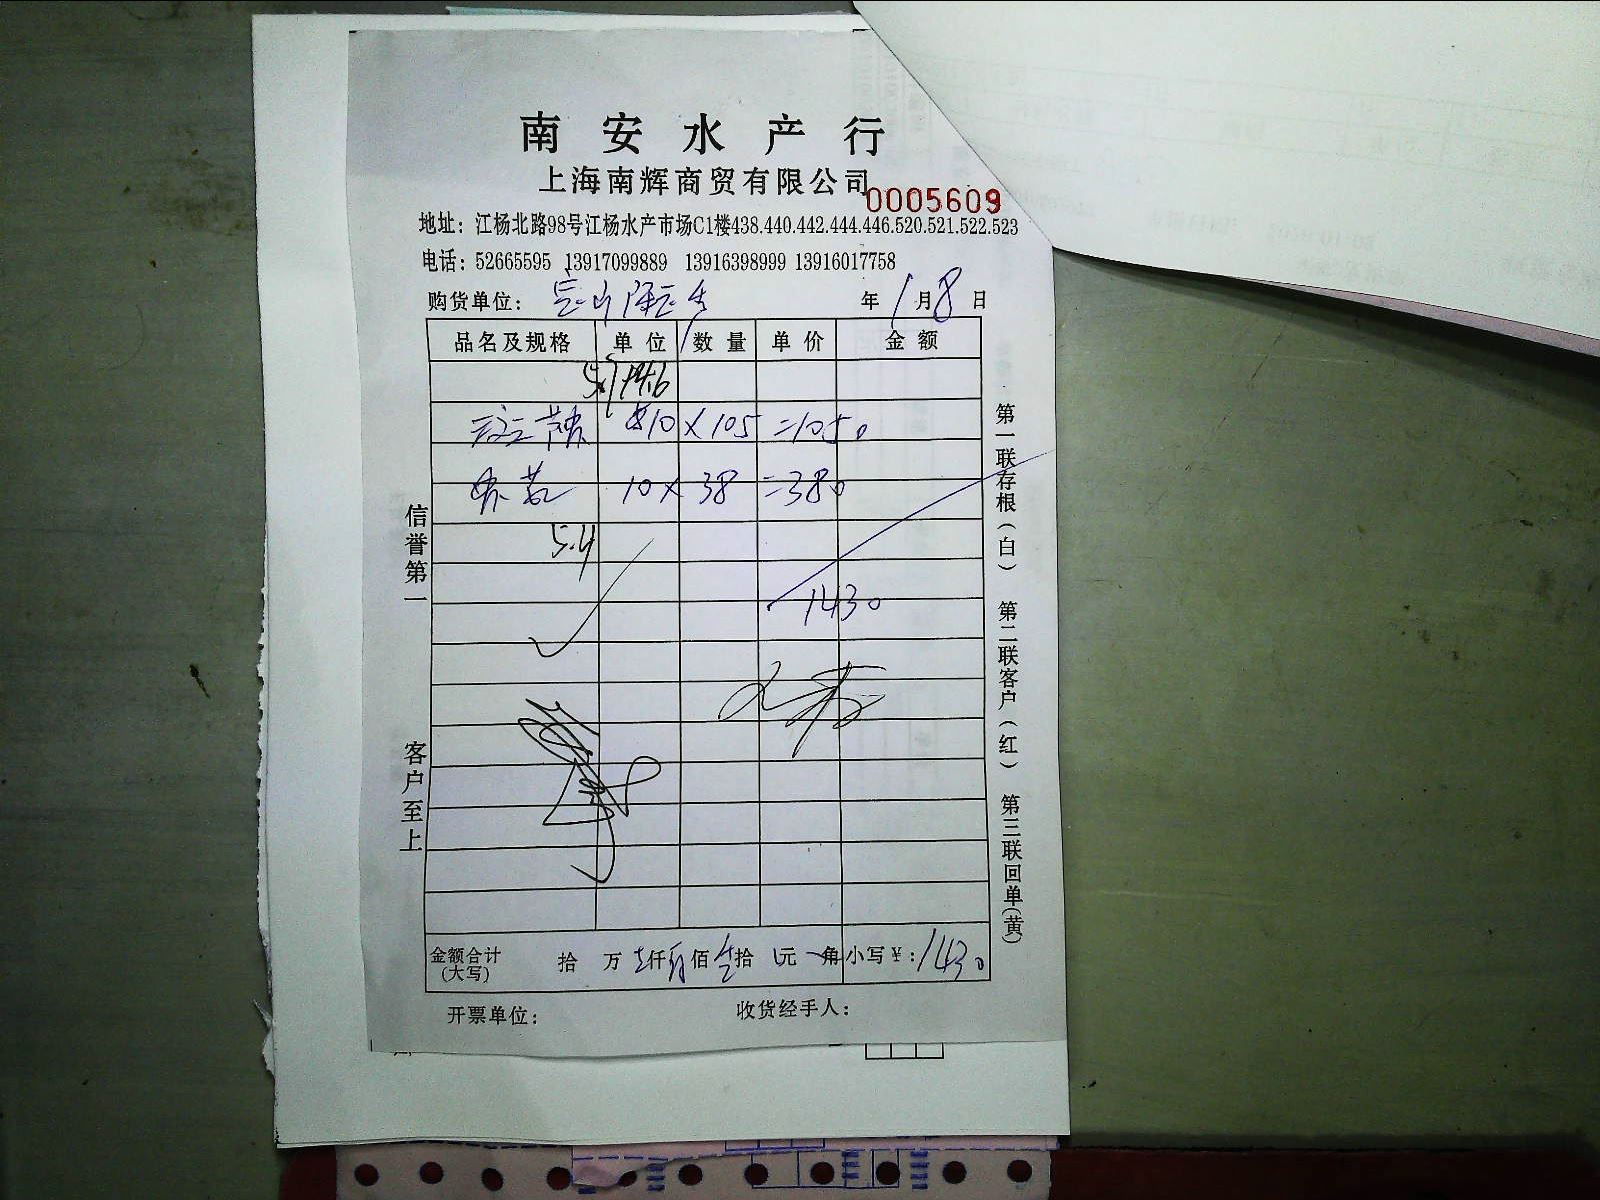 南安水产行
上海南辉商贸有限公司
0005609
地址：江杨北路98号江杨水产市场C1楼438.440.442.444.446.520.521.522.523
电话：52665595 13917099889 13916398999 13916017758
购货单位： 年 1月8日
品名及规格 单位 数量 单价 金额
10×105=1050
10×38=380
5.4
1430
金额合计(大写) 拾 万 仟 佰 拾 元 角 小写￥：1430
开票单位： 收货经手人：
信誉第一 客户至上
第一联存根（白） 第二联客户（红） 第三联回单（黄）